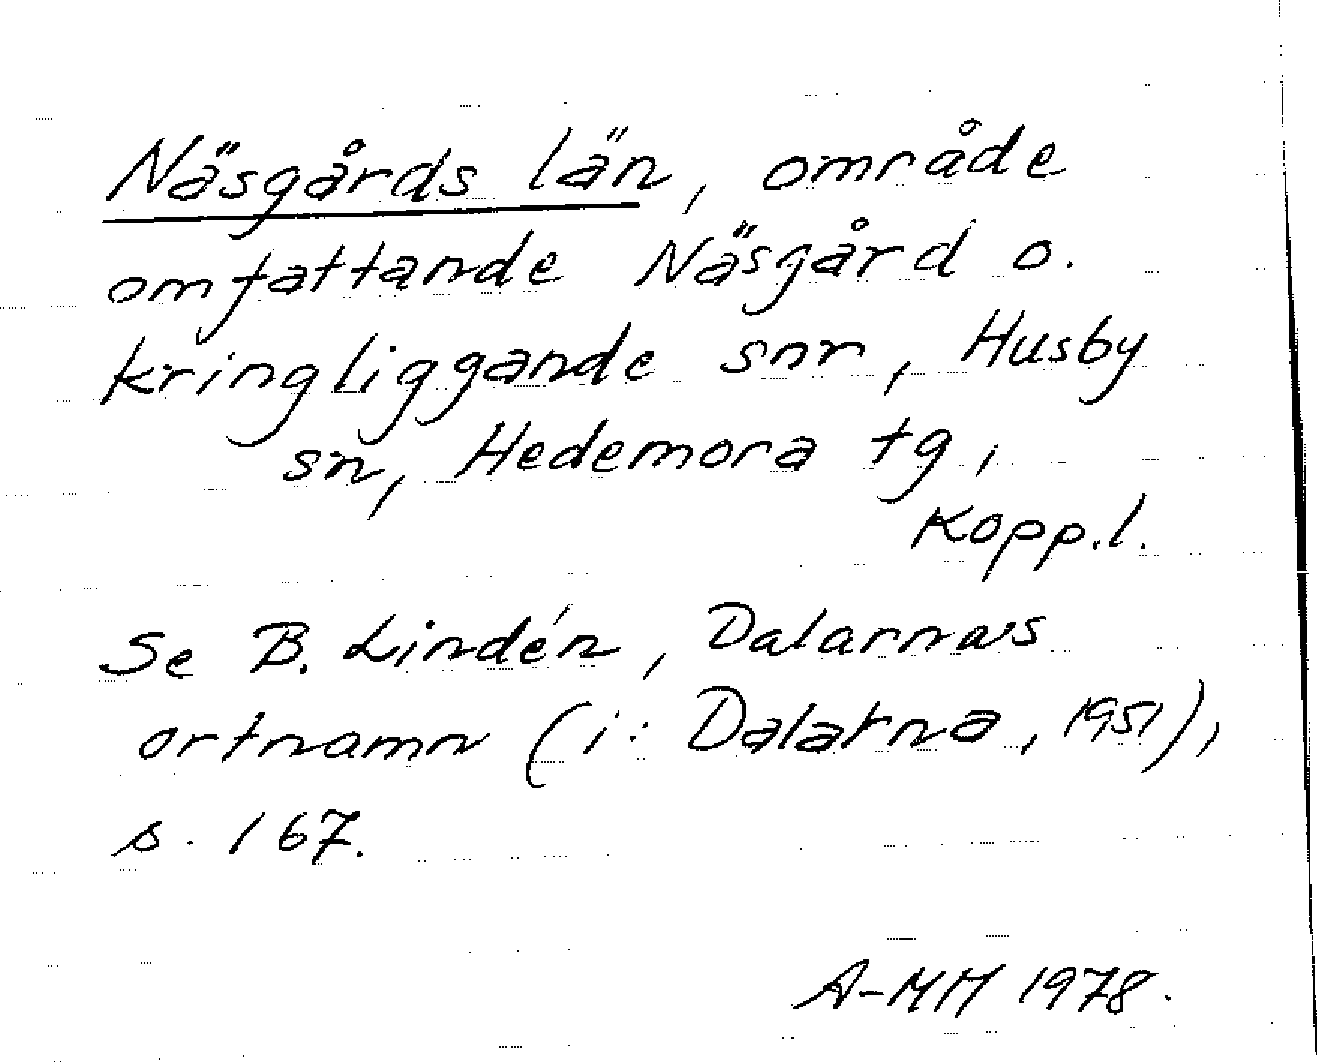 Näsgårds län, område
omfattande Näsgård o.
kringliggande snr, Husby
sn, Hedemora tg,
Kopp.l.
Se B. Lindén, Dalarnas
ortnamn (i: Dalarna, 1951),
s. 167.
A-MM 1978.